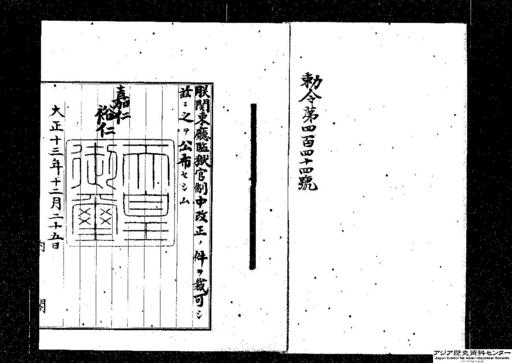 勅令第四百四十四號
朕関東廳監獄官制中改正ノ件ヲ裁可シ
茲ニ之ヲ公布セシム
嘉仁
裕仁
天皇
御璽
大正十三年十二月二十五日
内閣
アジア歴史資料センター
Japan Center for Asian Historical Records